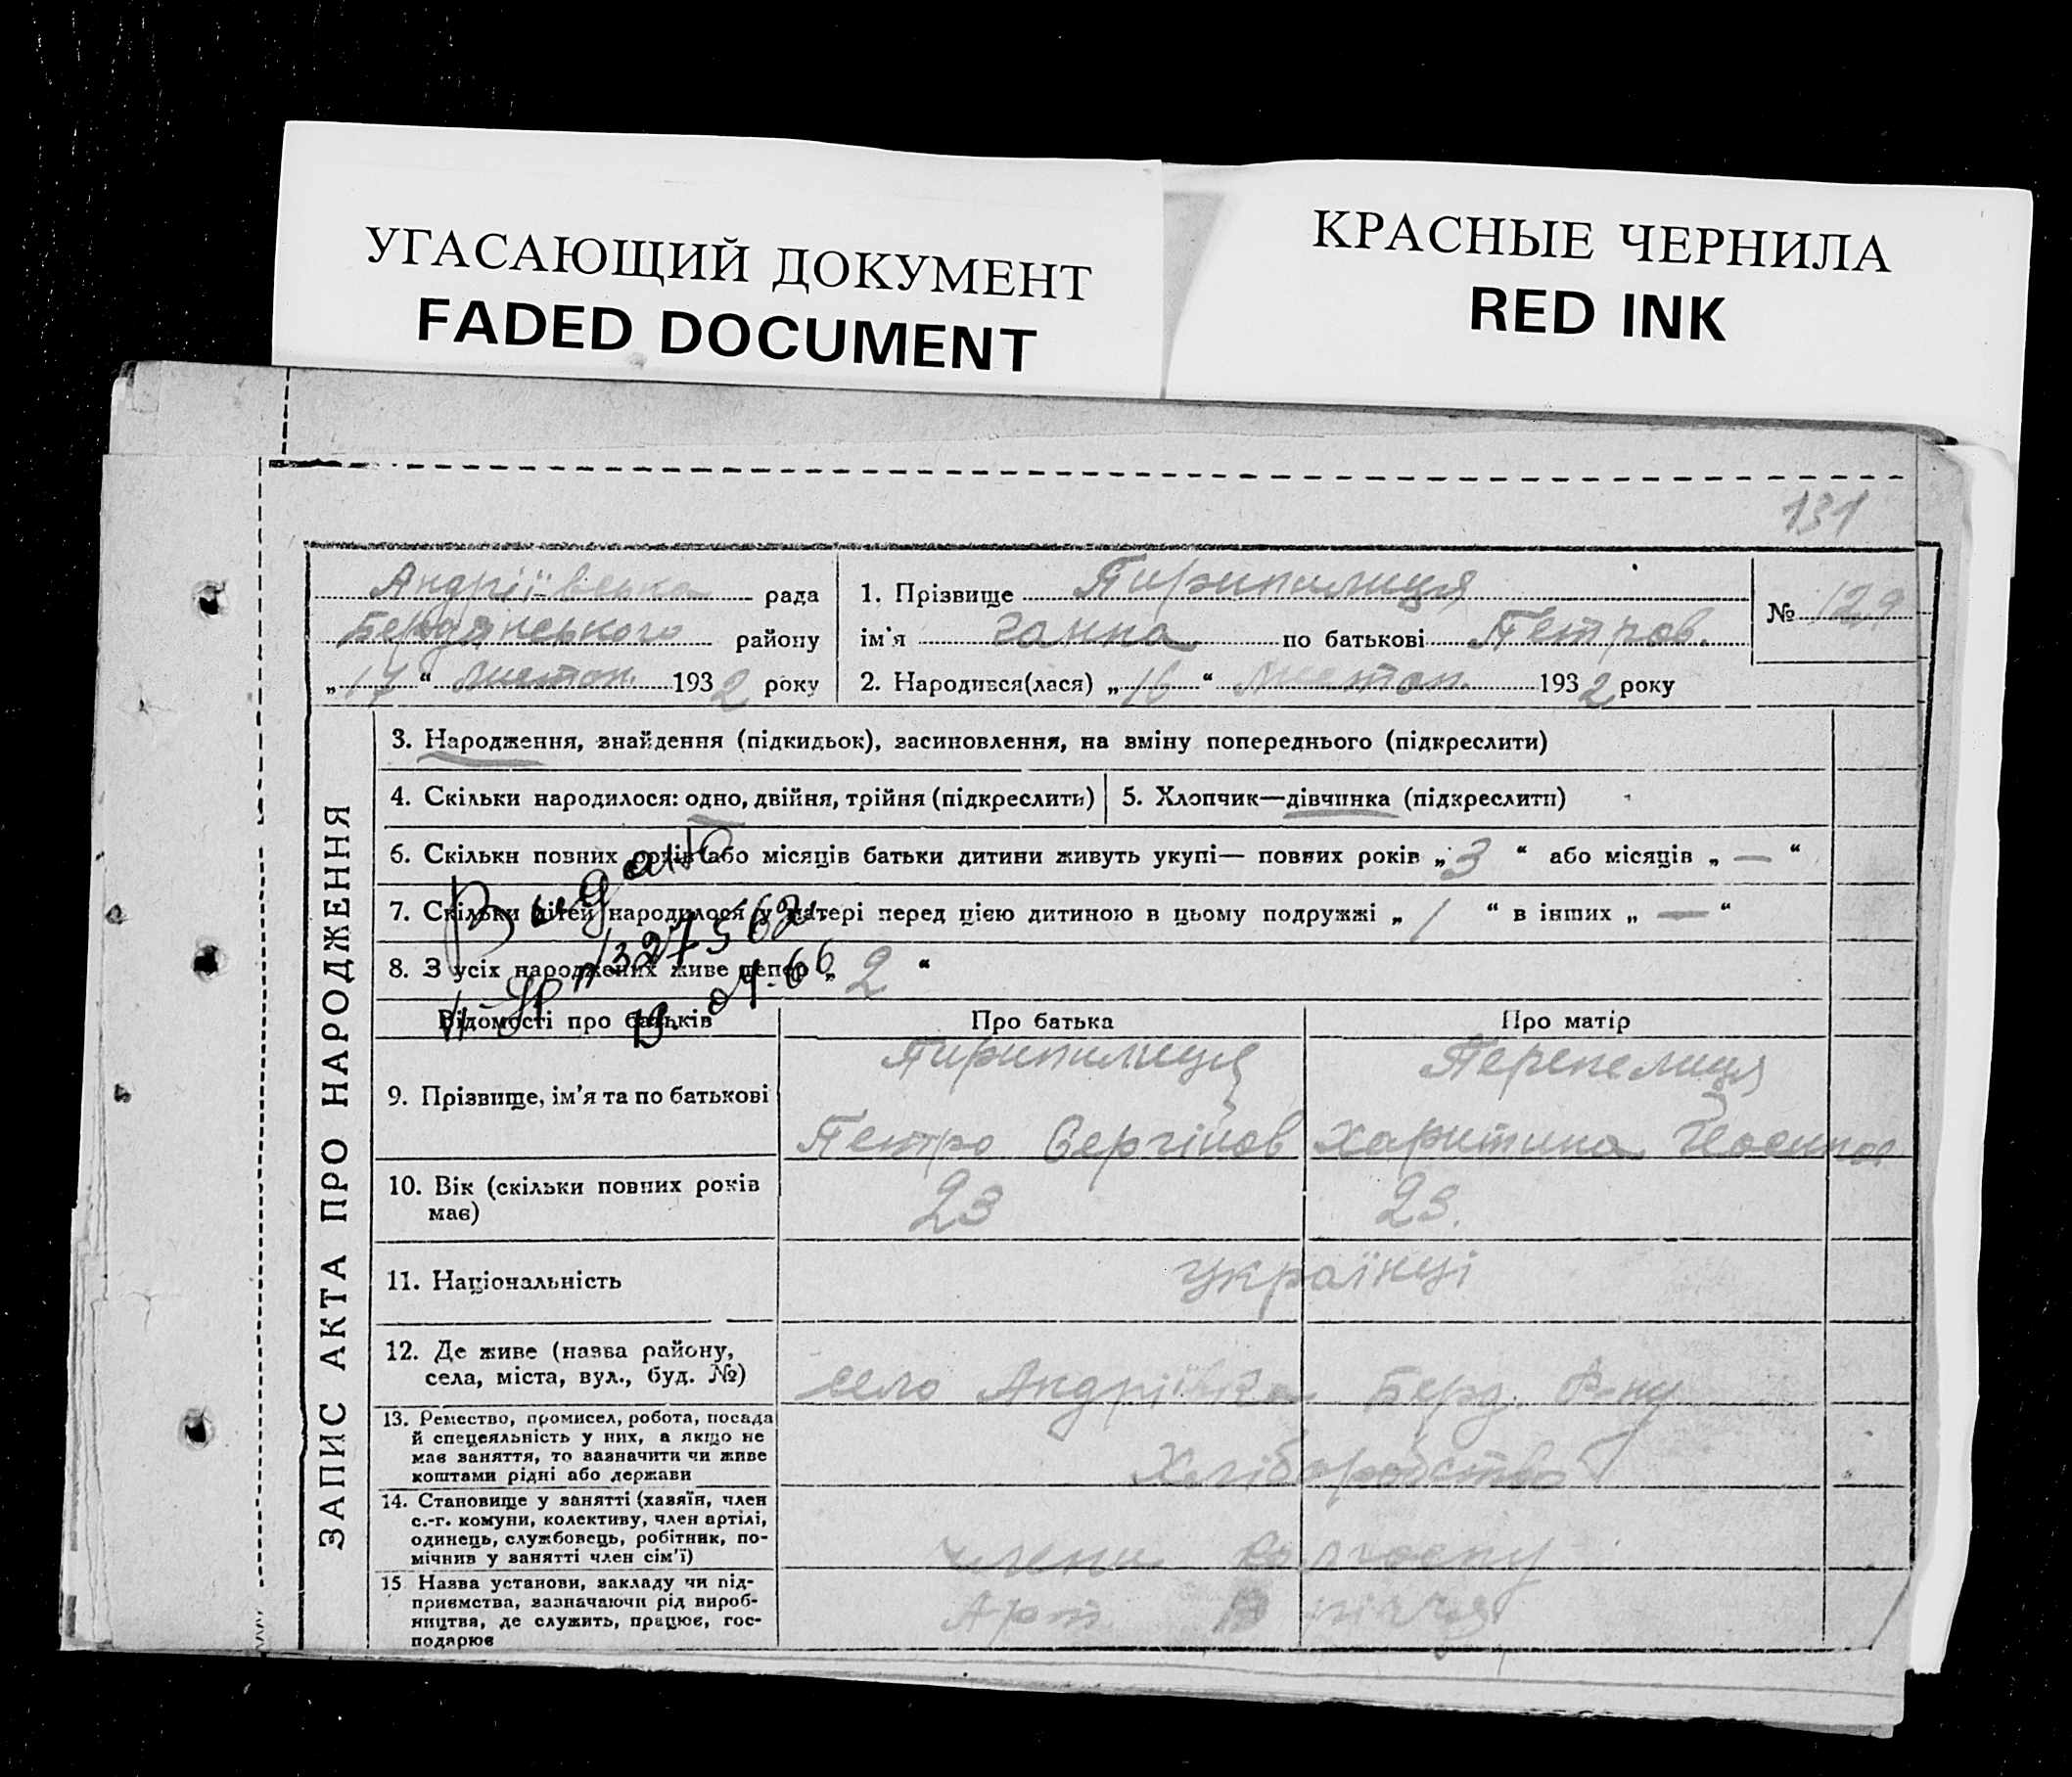 УГАСАЮЩИЙ ДОКУМЕНТ
FADED DOCUMENT
КРАСНЫЕ ЧЕРНИЛА
RED INK
131
Андріївська рада
Бердянського району
„ 17 “ листоп. 1932 року
1. Прізвище Пирипилиця
ім'я Ганна по батькові Петров.
2. Народився(лася) „ 16 “ листоп. 1932 року
№ 129
ЗАПИС АКТА ПРО НАРОДЖЕННЯ
3. Народження, знайдення (підкидьок), засиновлення, на зміну попереднього (підкреслити)
4. Скільки народилося: одно, двійня, трійня (підкреслити)
5. Хлопчик—дівчинка (підкреслити)
6. Скільки повних років або місяців батьки дитини живуть укупі— повних років „ 3 “ або місяців „ — “
7. Скільки дітей народилося у матері перед цією дитиною в цьому подружжі „ 1 “ в інших „ — “
8. З усіх народжених живе тепер „ 2 “
Видано
327562
Відомості про батьків
Про батька
Про матір
9. Прізвище, ім'я та по батькові
Пирипилиця
Петро Сергійов
Перепелиця
Харитина Йосипов
10. Вік (скільки повних років
має)
23
23.
11. Національність
Українці
12. Де живе (назва району,
села, міста, вул., буд. №)
село Андріївка Берд. Р-ну
13. Ремество, промисел, робота, посада
й спецеяльність у них, а якщо не
має заняття, то зазначити чи живе
коштами рідні або держави
Хліборобство
14. Становище у занятті (хазяїн, член
с.-г. комуни, колективу, член артілі,
одинець, службовець, робітник, по-
мічнив у занятті член сім'ї)
члени колгоспу
15 Назва установи, закладу чи під-
приємства, зазначаючи рід вироб-
ництва, де служить, працює, гос-
подарює
Арт.